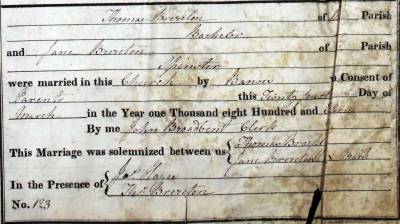 Thomas Brereton of Parish
Bachelor
and Jane Brereton of Parish
Spinster
were married in this Church by Banns Consent of
Parents this Twenty Day of
March in the Year One Thousand eight Hundred and
By me John Broadbent Clerk
This Marriage was solemnized between us Thomas
Jane Brereton Mark
In the Presence of
Brereton
No. 123